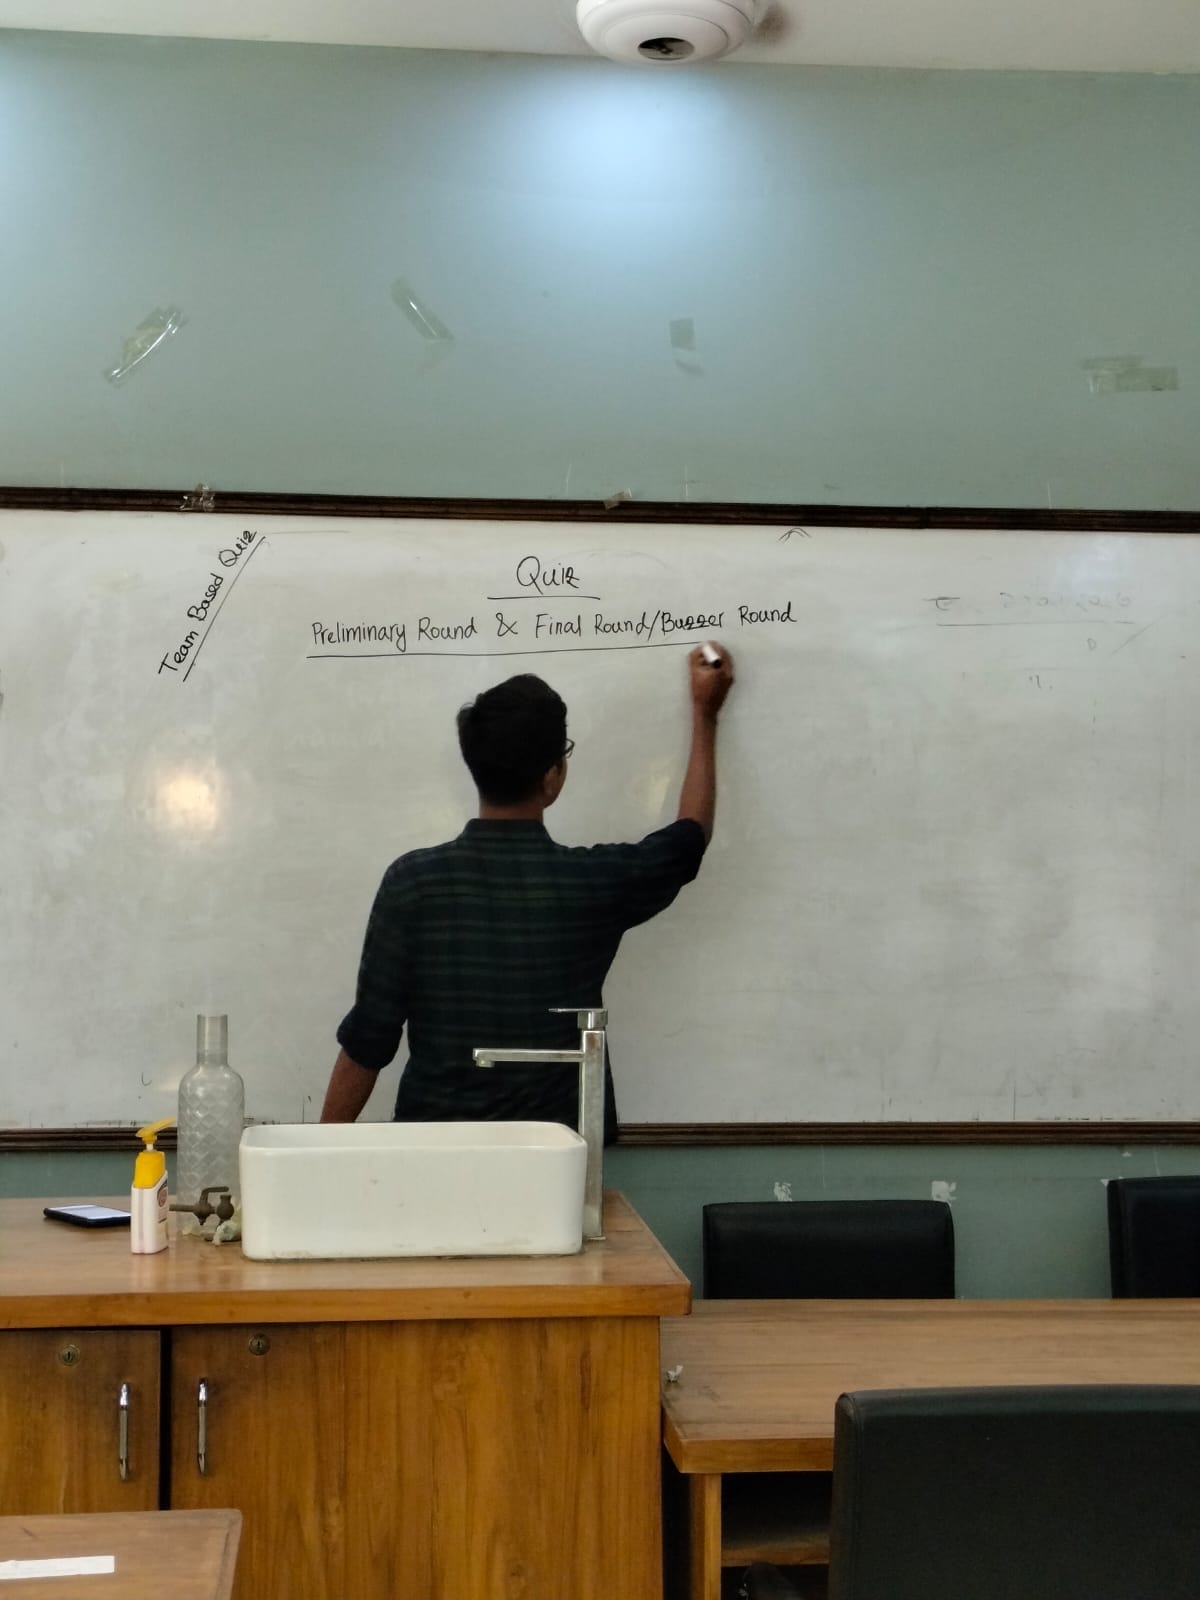 Team Based Quiz
Quiz
Preliminary Round & Final Round/Buzzer Round